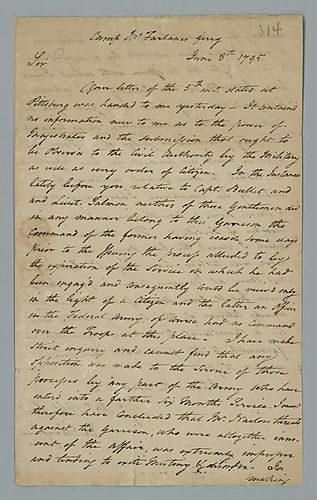 314
Camp Mc Farlanes ferry
June 8th 1795
Sir
Your letter of the 5th inst. dated at
Pittsburg was handed to me yesterday – It contained
no information new to me as to the power of
Magistrates and the Submission that ought to
be Observed to the Civil Authority by the Military
as well as every order of Citizen. In the Instances
lately before you relative to Capt. and
and Lieut. neither of those Gentlemen did
in any manner belong to this Garrison the
Command of the former having ceased some days
prior to the Issuing the process alluded to by
the expiration of the Service in which he had
been engag'd and Consequently could be view'd only
in the light of a Citizen and the latter an Officer
in the Federal Army of course had no command
over the Troops at this place – I have made
strict enquiry and cannot find that any
Opposition was made to the Service of those
processes by any part of the Army who have
inlisted into a farther Six Months Service. I must
therefore have concluded that Mr. threats
against the Garrison, who were altogether innocent
of the affair, was extremely improper
and tending to excite Mutiny & disorder – In
making